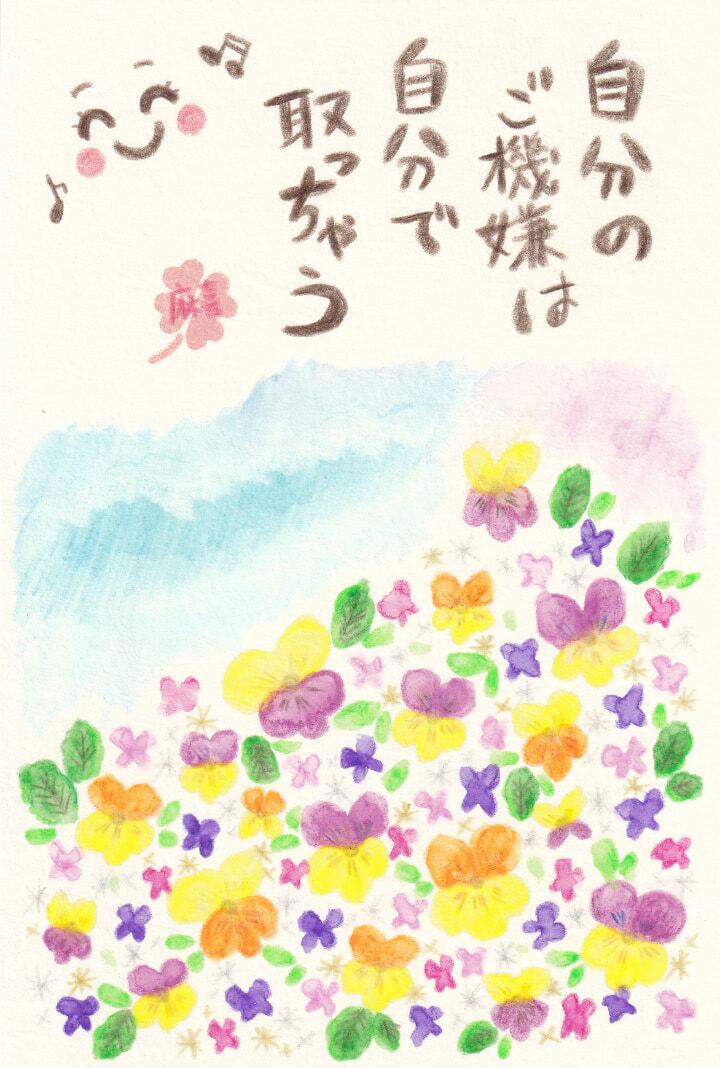 自分の
ご機嫌は
自分で
取っちゃう